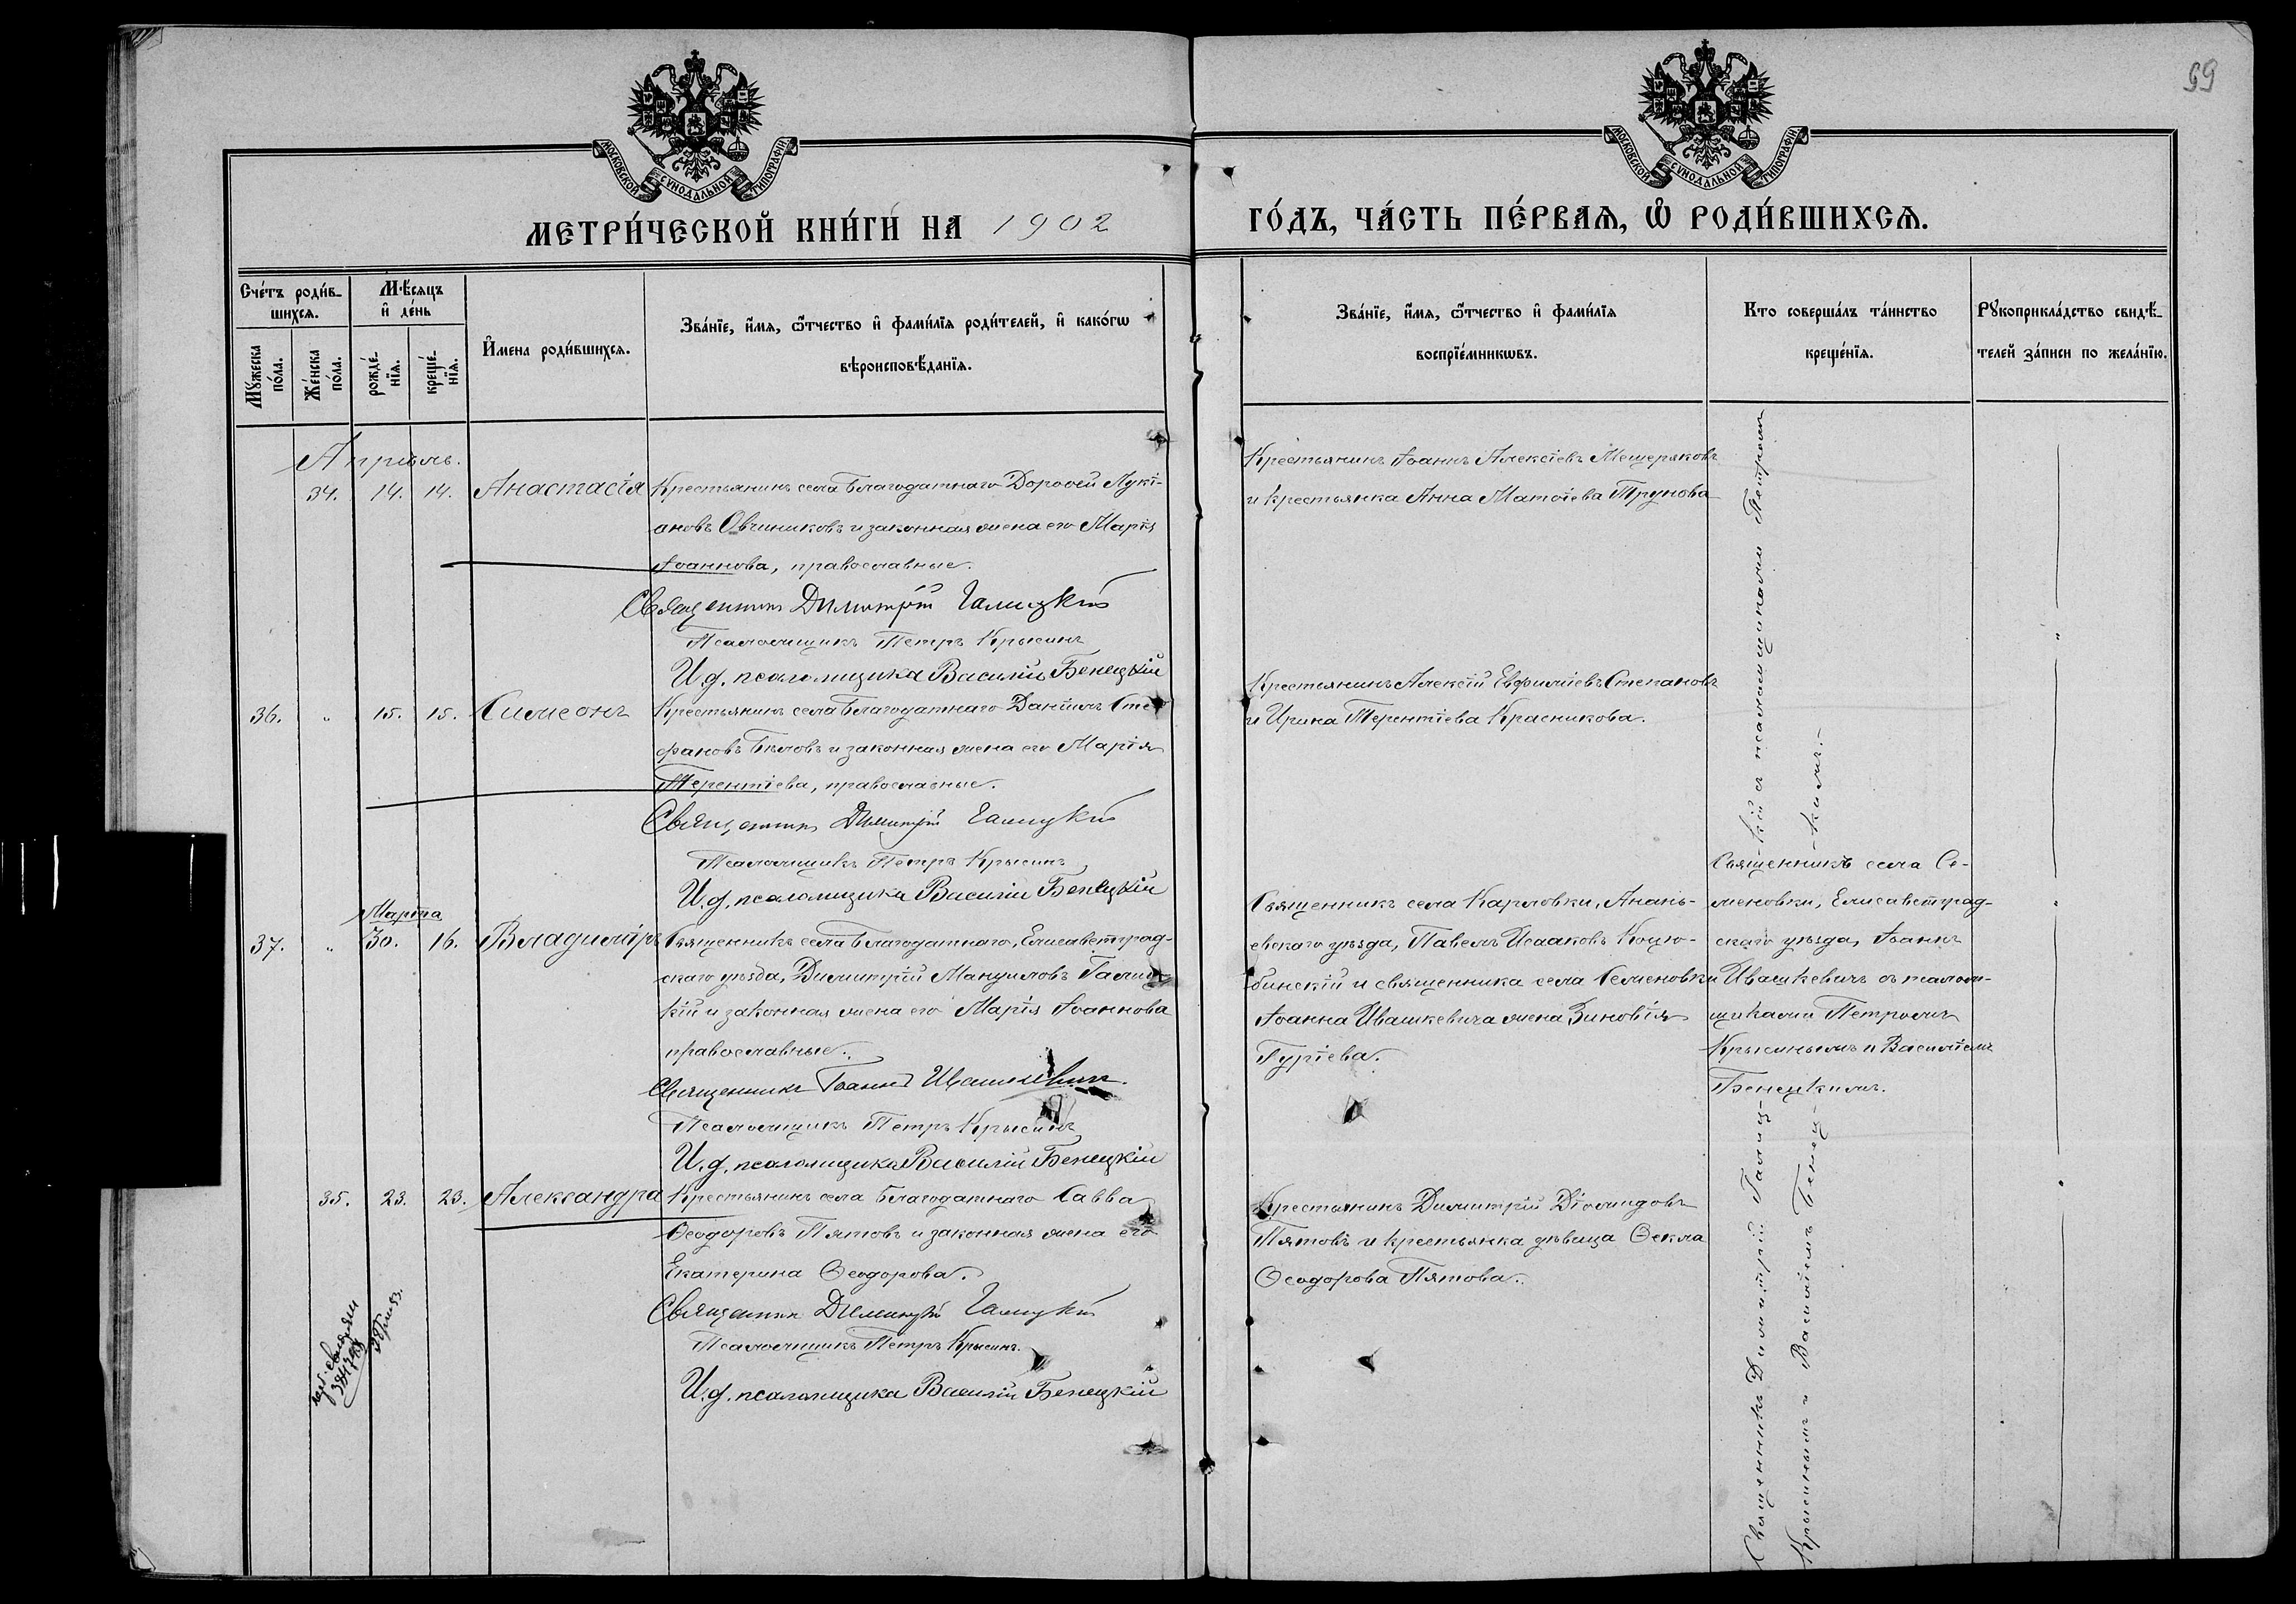 99
МОСКОВСКОЙ СѴНОДАЛЬНОЙ ТИПОГРАФІИ
МОСКОВСКОЙ СѴНОДАЛЬНОЙ ТИПОГРАФІИ
МЕТРИ́ЧЕСКОЙ КНИ́ГИ НА 1902
ГО́ДЪ, ЧА́СТЬ ПЕ́РВАѦ, Ѡ҆ РОДИ́ВШИХСѦ.
Сче́тъ роди́в-
шихсѧ.
Мѣ́сѧцъ
и҆ де́нь
Мꙋ́жеска
по́ла.
Же́нска
по́ла.
рожде́-
нїѧ.
креще́-
нїѧ.
И҆мена роди́вшихсѧ.
Зва́нїе, и҆́мѧ, ѻ҆́тчество и҆ фами́лїѧ роди́телей, и҆ како́гѡ
вѣроисповѣ́данїѧ.
Зва́нїе, и҆́мѧ, ѻ҆́тчество и҆ фами́лїѧ
воспрїе́мникѡвъ.
Кто соверша́лъ та́инство
креще́нїѧ.
Рꙋкоприкла́дство свидѣ́-
телей за́писи по жела́нїю.
Апрѣль.
34. 14. 14. Анастасія Крестьянинъ села Благодатнаго Дороѳей Лукі-
ановъ Овчиниковъ и законная жена его Марія
Іоаннова, православные.
Священникъ Димитрій Галицкій
Псаломщикъ Петръ Крысинъ
И.д. псаломщика Василій Бенецкій
Крестьянинъ Іоаннъ Алексіевъ Мещеряковъ
и крестьянка Анна Матѳіева Трунова
36. " 15. 15. Симеонъ Крестьянинъ села Благодатнаго Даніилъ Сте-
фановъ Бѣловъ и законная жена его Марія
Терентіева, православные.
Священникъ Димитрій Галицкій
Псаломщикъ Петръ Крысинъ
И.д. псаломщика Василій Бенецкій
Крестьянинъ Алексій Евфиміевъ Степановъ
и Ирина Терентіева Красникова.
Марта
37. " 30. 16. Владиміръ Священникъ села Благодатнаго, Елисаветград-
скаго уѣзда, Димитрій Мануиловъ Галиц-
кій и законная жена его Марія Іоаннова
православные.
Священникъ Іоаннъ Ивашкевичъ.
Псаломщикъ Петръ Крысинъ
И.д. псаломщика Василій Бенецкій
Священникъ села Карловки, Анань-
евскаго уѣзда, Павелъ Исааковъ Коцю-
бинскій и священника села Семеновки
Іоанна Ивашкевича жена Зиновія
Гуріева.
Священникъ села Се-
меновки, Елисаветград-
скаго уѣзда, Іоаннъ
Ивашкевичъ съ псалом-
щиками Петромъ
Крысинымъ и Василіемъ
Бенецкимъ.
35. 23. 23. Александра Крестьянинъ села Благодатнаго Савва
Ѳеодоровъ Пятовъ и законная жена его
Екатерина Ѳеодорова.
Священникъ Димитрій Галицкій
Псаломщикъ Петръ Крысинъ.
И.д. псаломщика Василій Бенецкій
Крестьянинъ Димитрій Діомидовъ
Пятовъ и крестьянка дѣвица Ѳекла
Ѳеодорова Пятова.
Священникъ Димитрій Галиц-
кій съ псаломщиками Петромъ
Крысинымъ и Василіемъ Бенец-
кимъ.